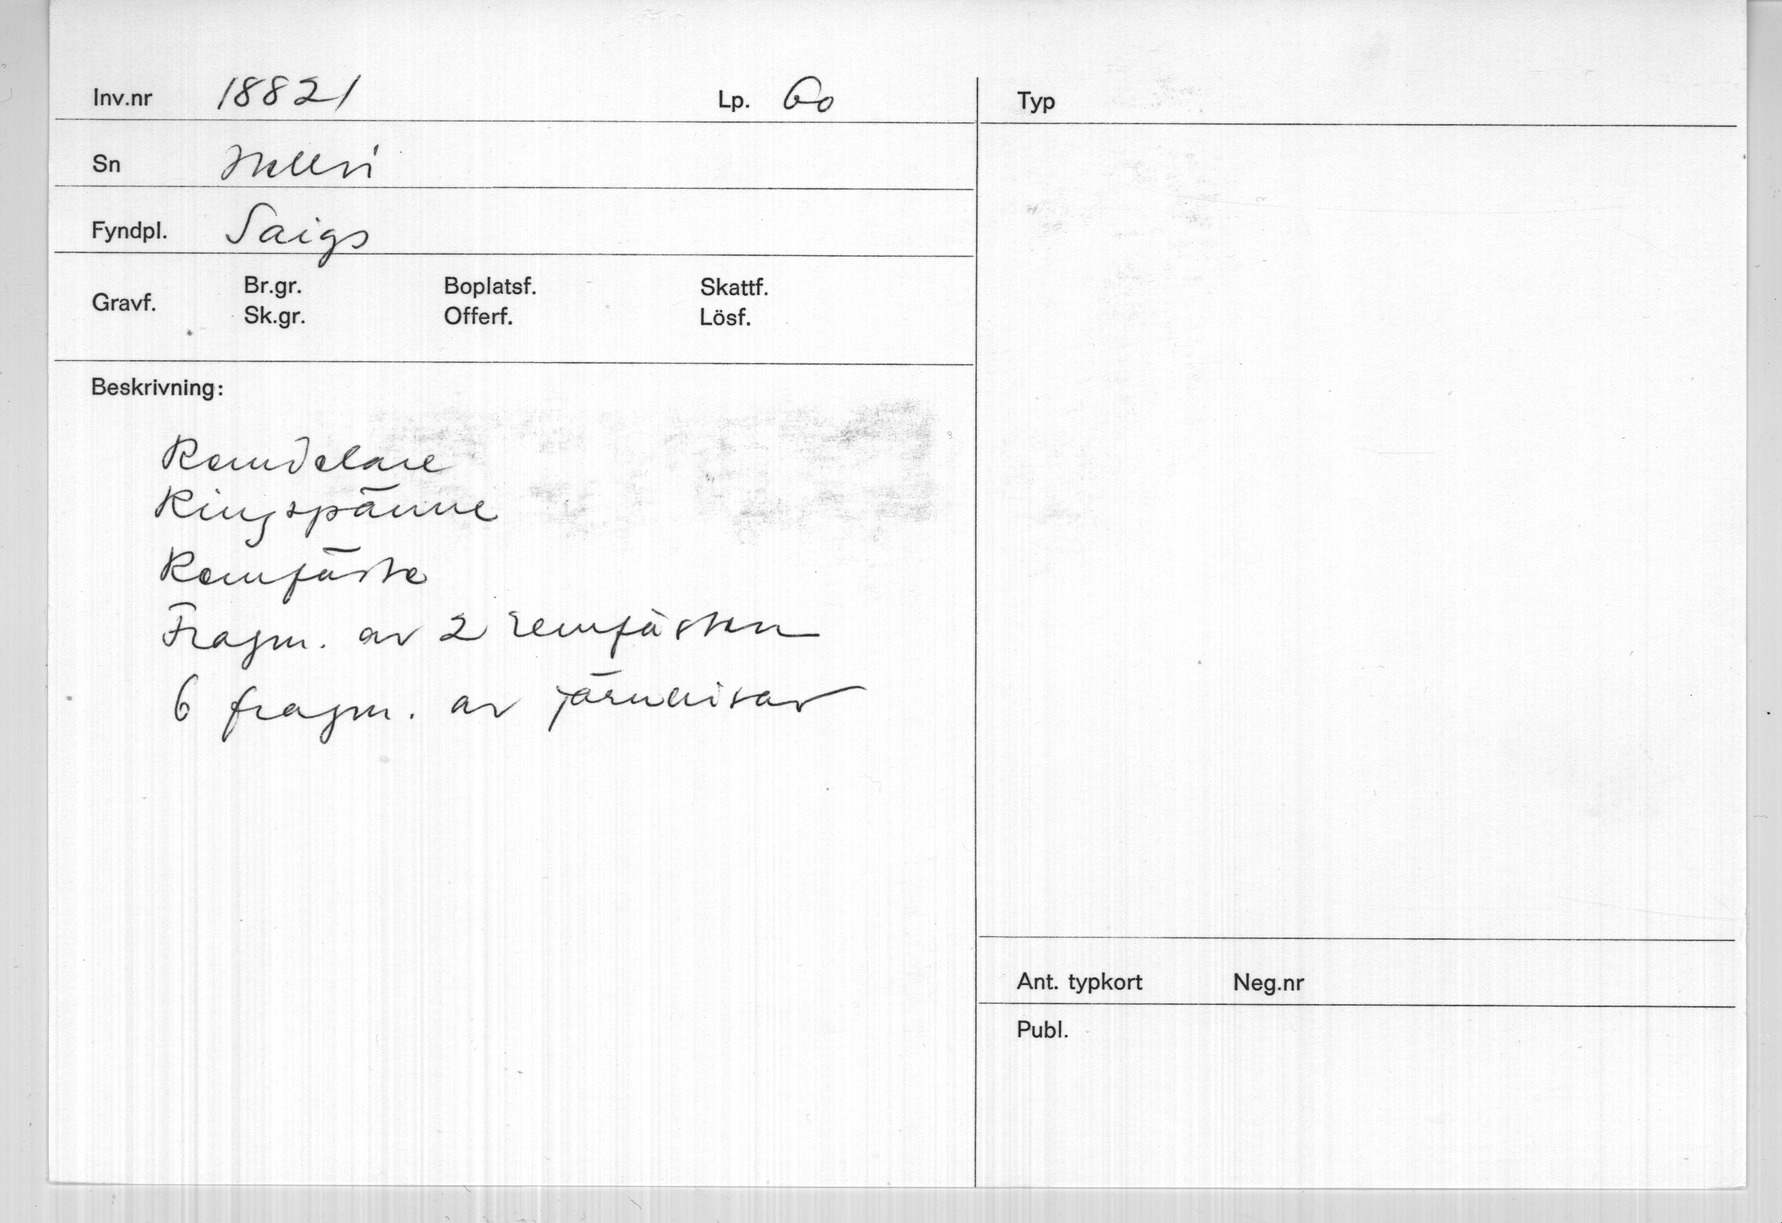 Inv.nr 18821 Lp. Go
Sn Hellvi
Fyndpl. Saigs
Gravf. Br.gr. Boplatsf. Skattf.
Sk.gr. Offerf. Lösf.
Beskrivning:
Remdelare
Ringspänne
Remfäste
Fragm. av 2 remfästen
6 fragm. av järnnitar
Typ
Ant. typkort Neg.nr
Publ.